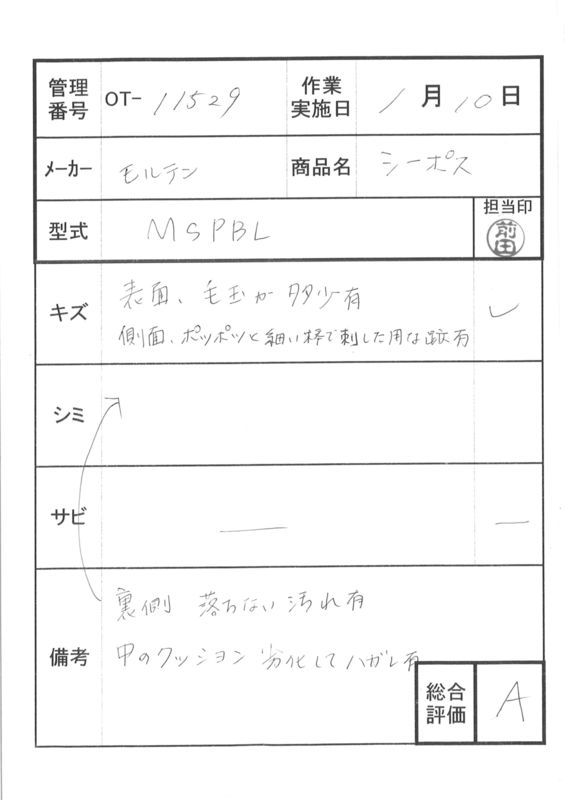 管理番号 OT- 11529 作業実施日 1月10日
メーカー モルテン 商品名 シーポス
型式 MSPBL 担当印 前田
キズ 表面、毛玉が多少有 ✓
側面、ポッポツと細い棒で刺した用な跡有
シミ
サビ — —
備考 裏側 落ちない汚れ有
中のクッション 劣化してハガレ有
総合評価 A